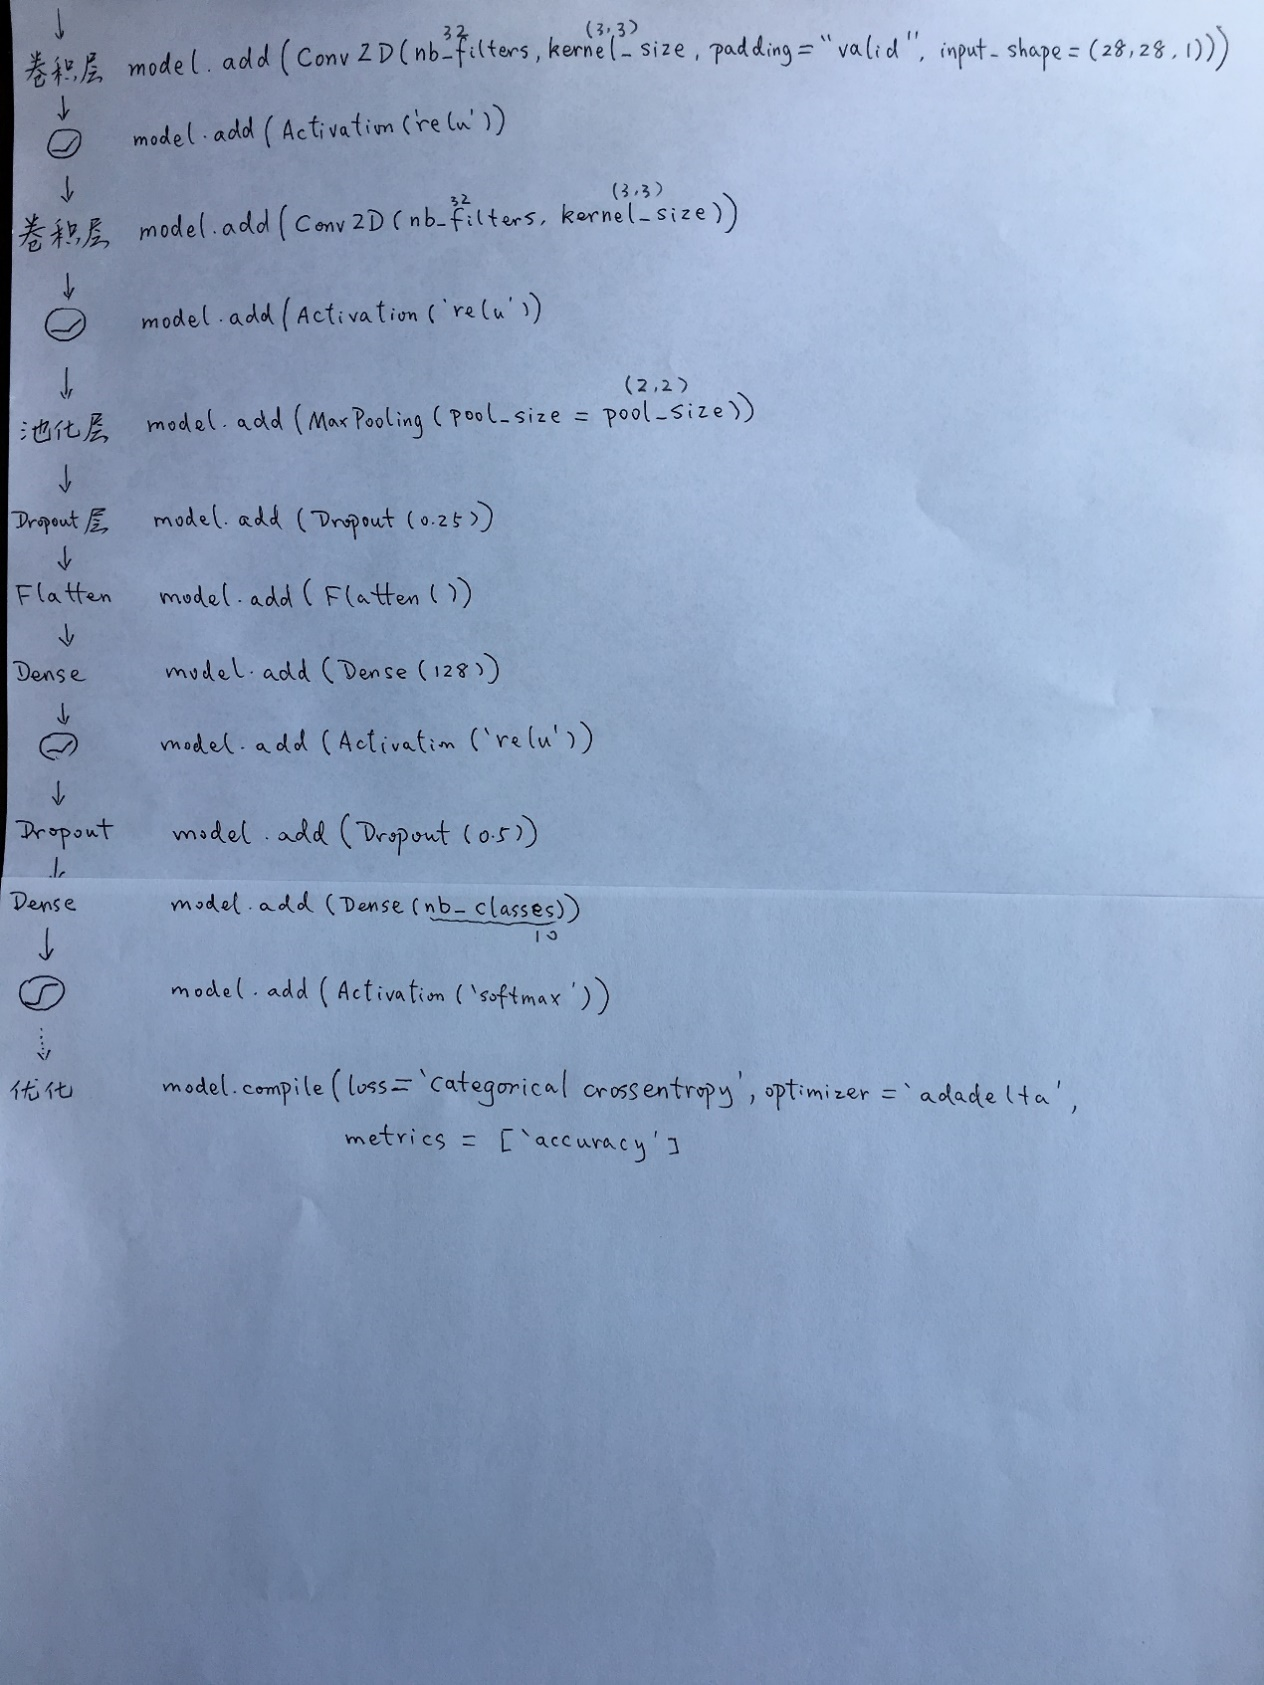 32 (3,3)
卷积层 model.add(Conv2D(nb_filters, kernel_size, padding="valid", input_shape=(28,28,1)))
model.add(Activation('relu'))
32 (3,3)
卷积层 model.add(Conv2D(nb_filters, kernel_size))
model.add(Activation('relu'))
(2,2)
池化层 model.add(MaxPooling(pool_size = pool_size))
Dropout层 model.add(Dropout(0.25))
Flatten model.add(Flatten())
Dense model.add(Dense(128))
model.add(Activation('relu'))
Dropout model.add(Dropout(0.5))
Dense model.add(Dense(nb_classes))
10
model.add(Activation('softmax'))
优化 model.compile(loss='categorical crossentropy', optimizer='adadelta',
metrics = ['accuracy']